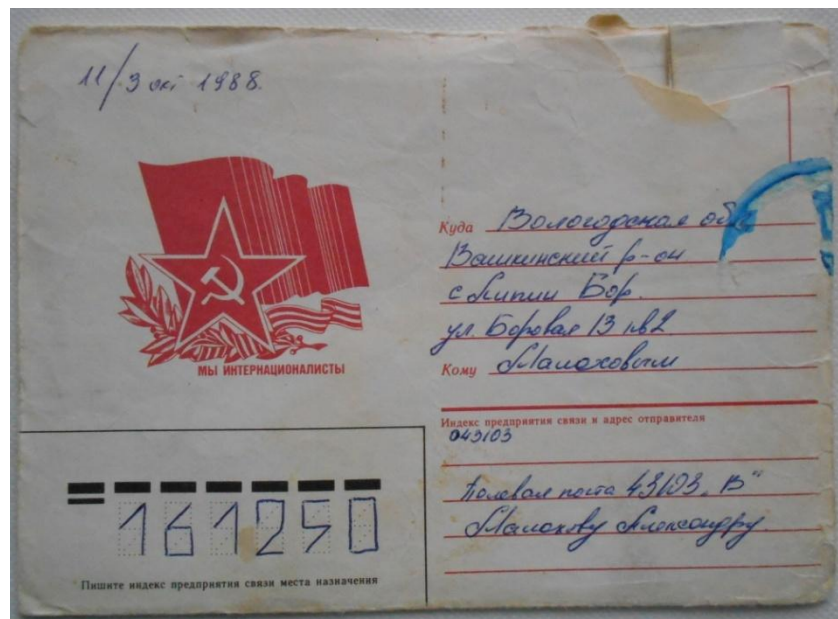 11/3 окт 1988.
МЫ ИНТЕРНАЦИОНАЛИСТЫ
Куда Вологодская обл
Вашкинский р-он
с Липин Бор.
ул. Боровая 13 кв2
Кому Малаховым
Индекс предприятия связи и адрес отправителя
043103
Полевая почта 43103 „В"
Малахову Александру.
161250
Пишите индекс предприятия связи места назначения